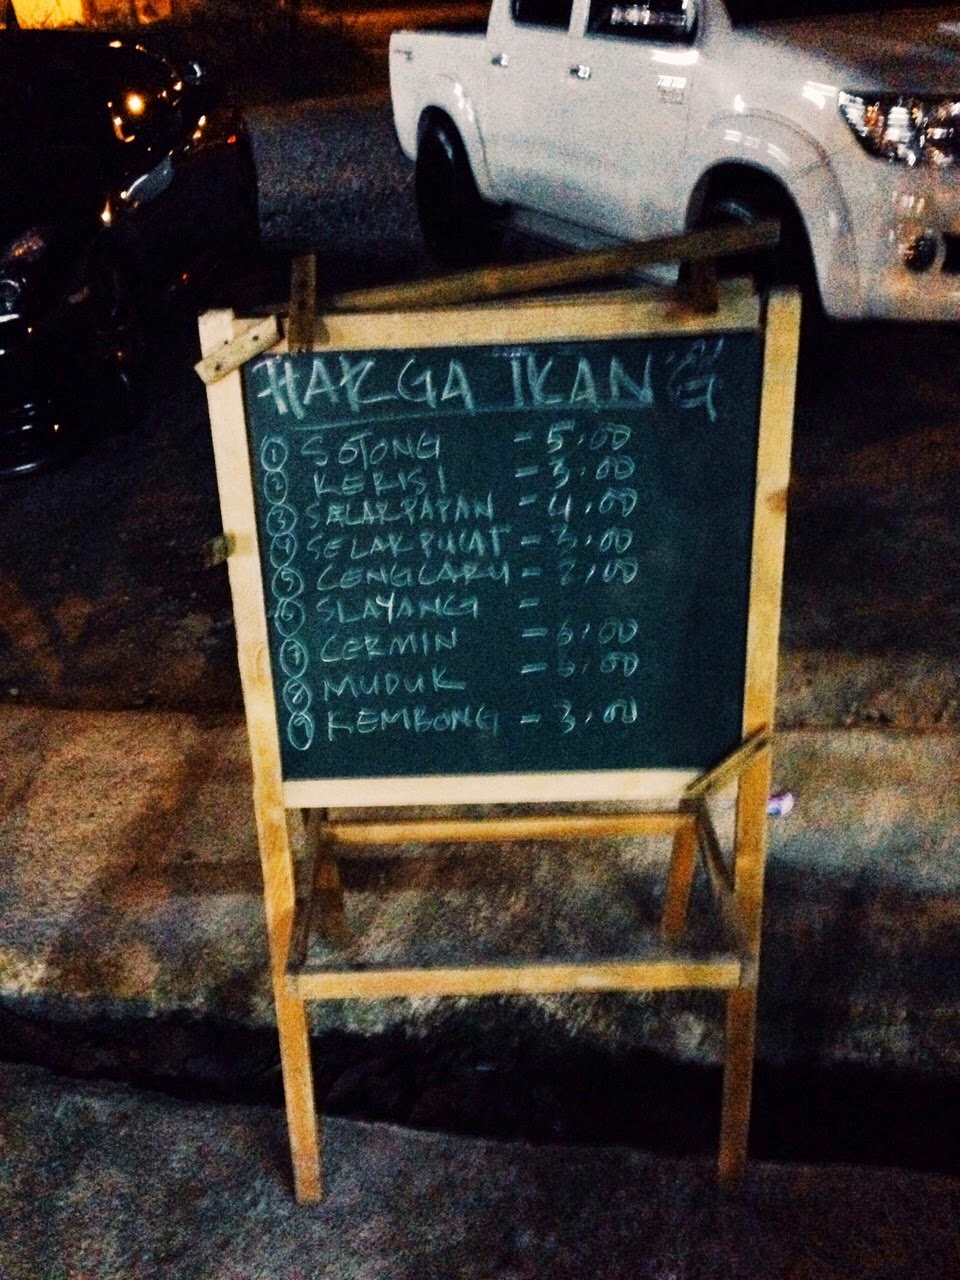 HARGA IKAN
① SOTONG - 5.00
② KERISI - 3.00
③ SELARPAPAN - 4.00
④ SELAR PUCAT - 3.00
⑤ CENGCARU - 2.00
⑥ SLAYANG -
⑦ CERMIN - 6.00
⑧ MUDUK - 5.00
⑨ KEMBONG - 3.00